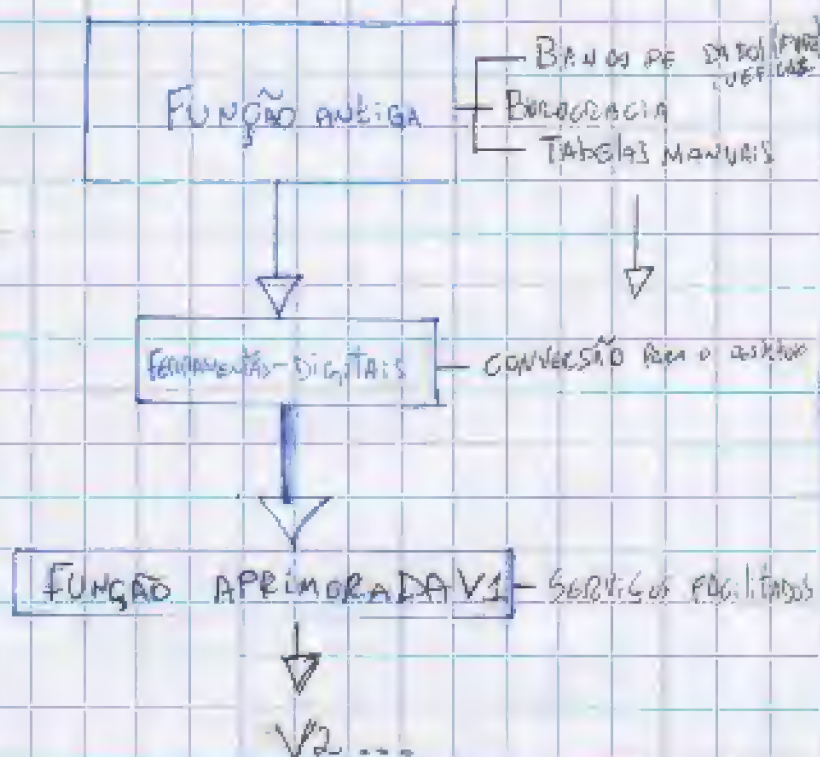 FUNÇÃO ANTIGA
BANCO DE DADOS
BUROCRACIA
TABELAS MANUAIS
FERRAMENTAS-DIGITAIS
CONVERSÃO PARA O
FUNÇÃO APRIMORADA V1
SERVIÇOS FACILITADOS
V2 ...